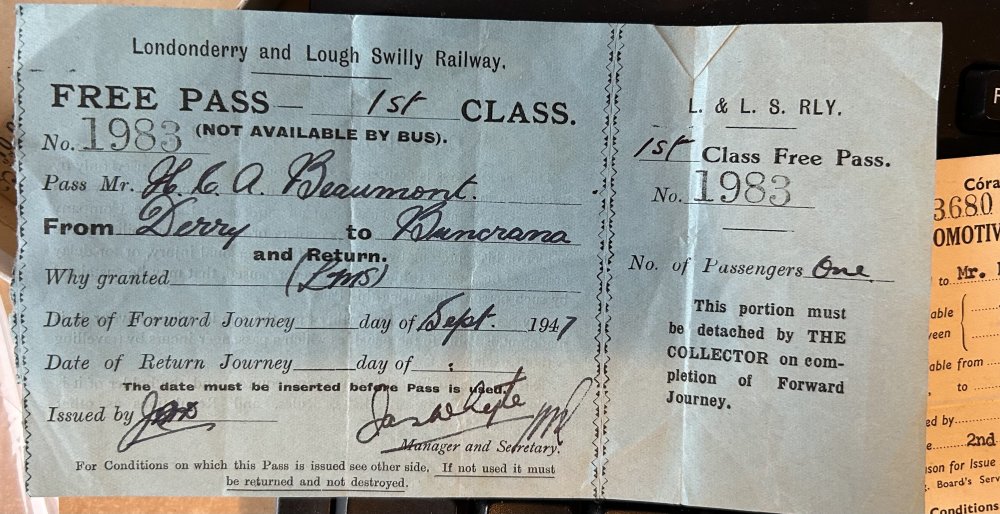 Londonderry and Lough Swilly Railway.
FREE PASS— 1st CLASS.
No. 1983 (NOT AVAILABLE BY BUS).
Pass Mr. H. C. A. Beaumont.
From Derry to Buncrana
and Return.
Why granted (LMS)
Date of Forward Journey day of Sept. 1947
Date of Return Journey day of
The date must be inserted before Pass is used.
Issued by
Jas Whyte
Manager and Secretary.
For Conditions on which this Pass is issued see other side. If not used it must
be returned and not destroyed.
L. & L. S. RLY.
1st Class Free Pass.
No. 1983
No. of Passengers One
This portion must
be detached by THE
COLLECTOR on com-
pletion of Forward
Journey.
Córa
3680
OMOTIV
to Mr.
able
een
able from
to
ed by
2nd
son for Issue
Board's Serv
Conditions